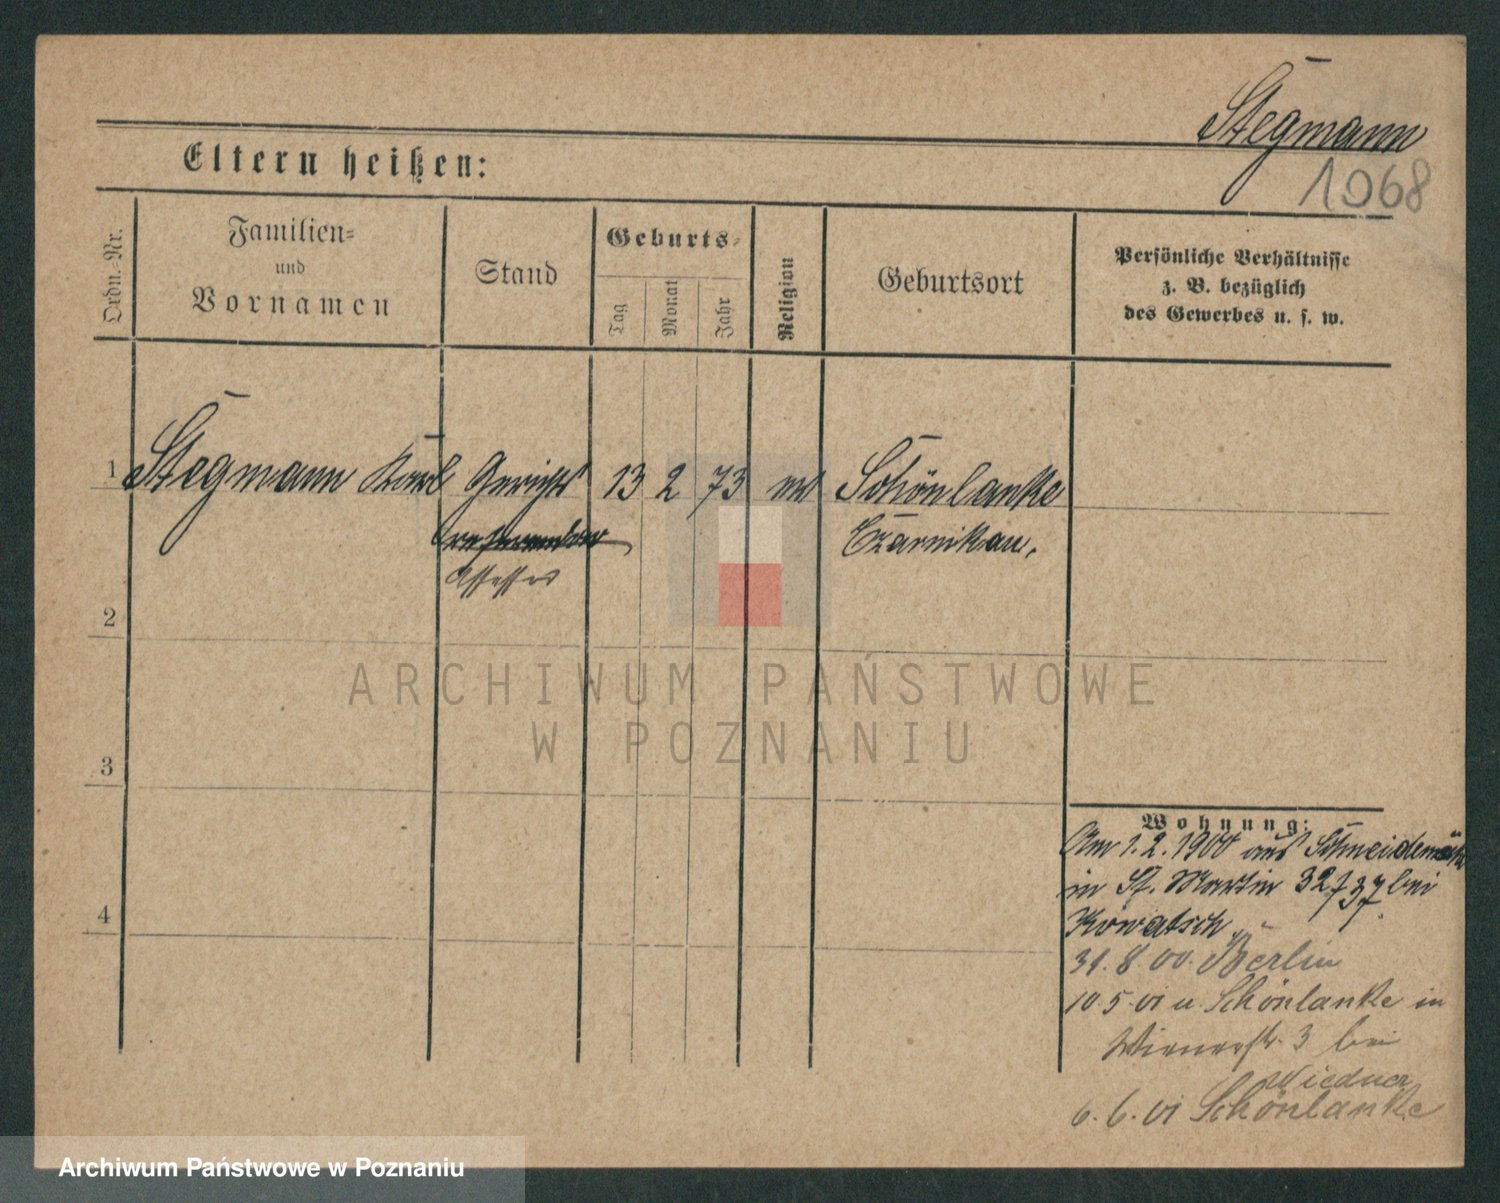 Stegmann
1068
Eltern heißen:
Ordn.-Nr.
Familien-
und
Vornamen
Stand
Geburts-
Tag
Monat
Jahr
Religion
Geburtsort
Persönliche Verhältnisse
z. B. bezüglich
des Gewerbes u. s. w.
1 Stegmann Karl Gerichts 13 2 73 Schönlanke
referendar Czarnikau.
Assessor
2
3
4
Wohnung:
Am 1.2.1900 aus Schneidemühl
in St. Martin 32/37 bei
Kowatsch
31.8.00. Berlin
10.5.01 u Schönlanke in
Wienerstr. 3 bei
Wiedner
6.6.01 Schönlanke
ARCHIWUM PAŃSTWOWE
W POZNANIU
Archiwum Państwowe w Poznaniu